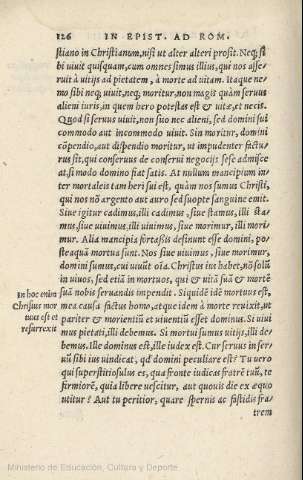 126 IN EPIST. AD ROM.
stiano in Christianum, nisi ut alter alteri prosit. Neq; si
bi uiuit quisquam, cum omnes simus illius, qui nos asse
ruit à uitijs ad pietatem, à morte ad uitam. Itaque ne
mo sibi neq; uiuit, neq; moritur, non magis quàm seruus
alieni iuris, in quem hero potestas est & uitæ, et necis.
Quod si seruus uiuit, non suo nec alieni, sed domini sui
commodo aut incommodo uiuit. Sin moritur, domini
cōpendio, aut dispendio moritur, ut impudenter factu-
rus sit, qui conseruus de conserui negocijs sese admisce
at, si modo domino fiat satis. At nullum mancipium in-
ter mortaleis tam heri sui est, quàm nos sumus Christi,
qui nos nō argento aut auro sed suopte sanguine emit.
Siue igitur cadimus, illi cadimus, siue stamus, illi sta
mus, siue uiuimus, illi uiuimus, siue morimur, illi mori
mur. Alia mancipia fortaßis desinunt esse domini, po-
steaquā mortua sunt. Nos siue uiuimus, siue morimur,
domini sumus, cui uiuūt oīa. Christus ius habet, nō solū
in uiuos, sed etiā in mortuos, qui & uitā suā & mortē
suā nobis seruandis impendit. Siquidē idē mortuus est,
mea causa factus homo, atque idem à morte reuixit, ut
pariter & morientiū et uiuentiū esset dominus. Si uiui
mus pietati, illi debemus. Si mortui sumus uitijs, illi de-
bemus. Ille dominus est, ille iudex est. Cur seruus in ser-
uū sibi ius uindicat, qd' domini peculiare est? Tu uero
qui superstitiosulus es, qua fronte iudicas fratrē tuū, te
firmiorē, quia libere uescitur, aut quouis die ex æquo
utitur? Aut tu peritior, quare spernis ac fastidis fra
trem
In hoc enim
Christus mor
tuus est et
resurrexit
Ministerio de Educación, Cultura y Deporte